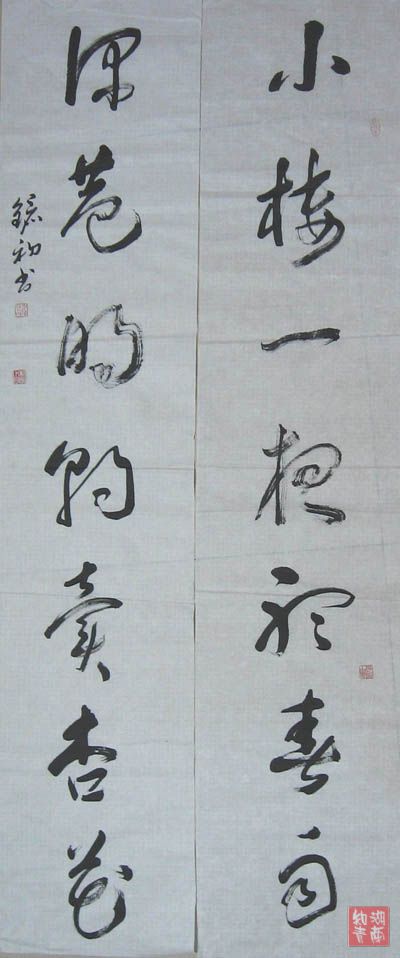 小樓一夜聽春雨
深巷明朝賣杏花
初书